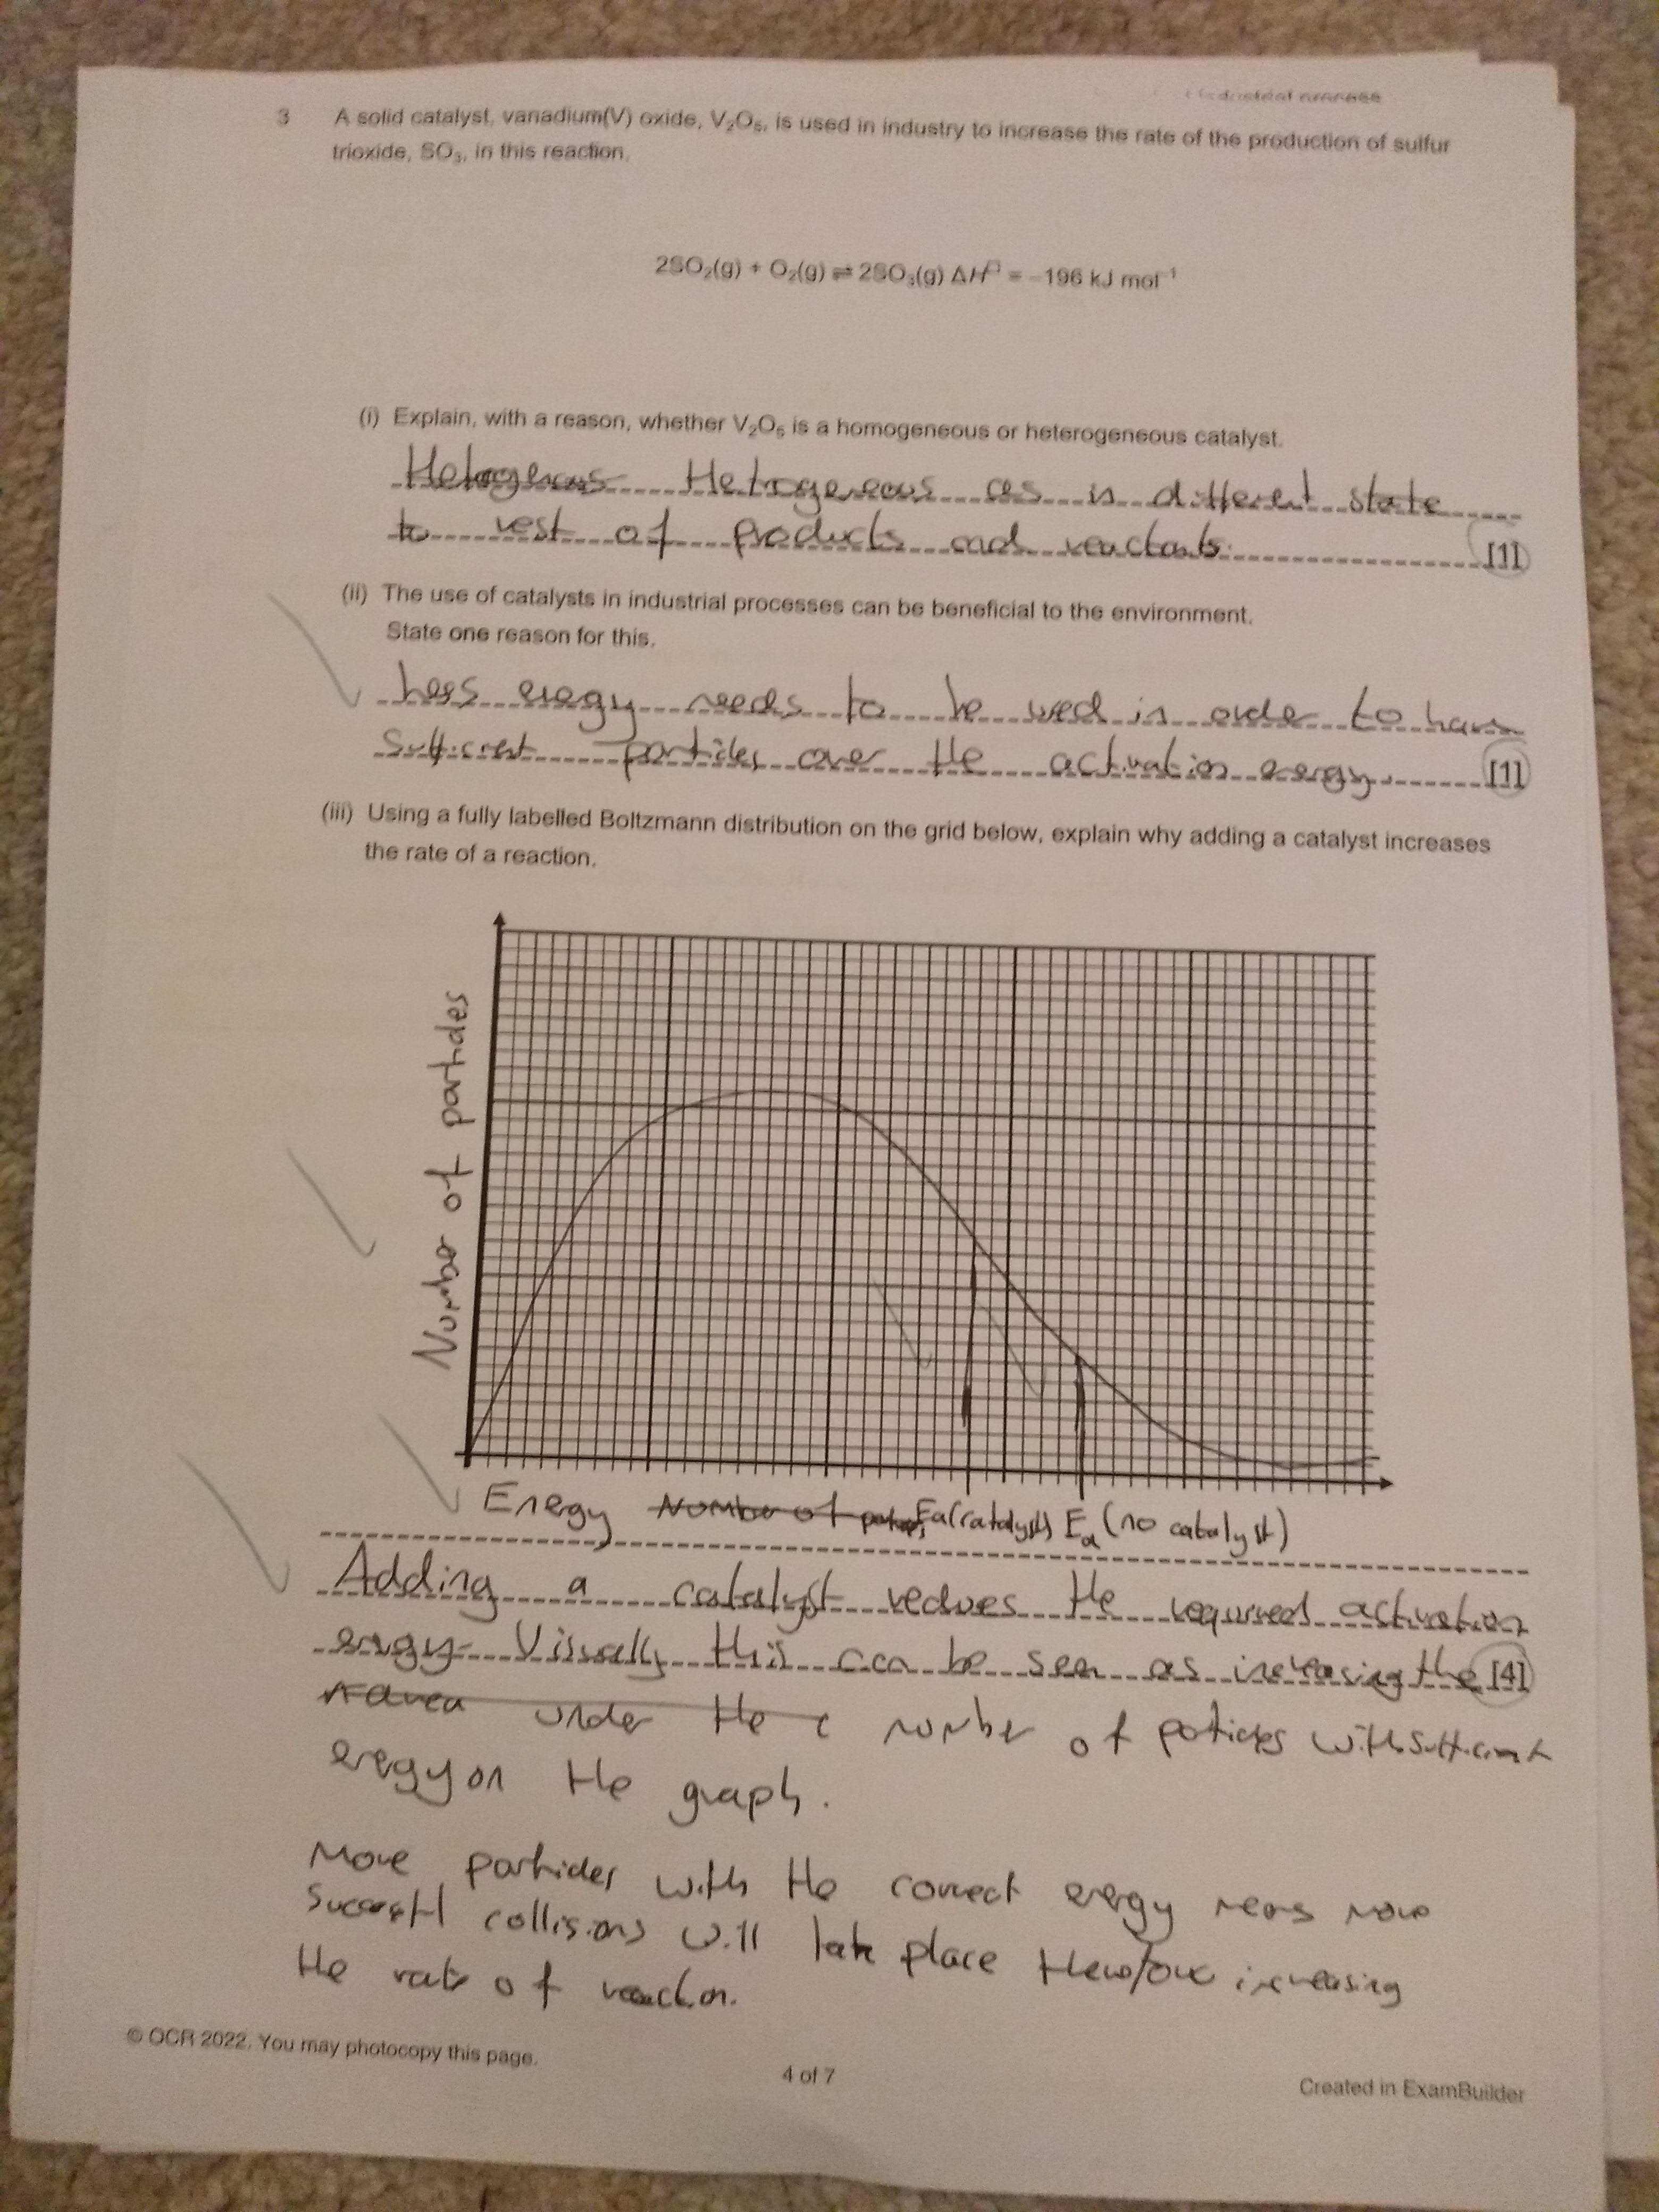 industrial process
3 A solid catalyst, vanadium(V) oxide, V₂O₅, is used in industry to increase the rate of the production of sulfur
trioxide, SO₃, in this reaction.
2SO₂(g) + O₂(g) ⇌ 2SO₃(g) ΔH□ = −196 kJ mol⁻¹
(i) Explain, with a reason, whether V₂O₅ is a homogeneous or heterogeneous catalyst.
Hetrogeneous as is different state
to rest of products and reactants.
[1]
(ii) The use of catalysts in industrial processes can be beneficial to the environment.
State one reason for this.
Less energy needs to be used in order to have
sufficient particles over the activation energy.
[1]
(iii) Using a fully labelled Boltzmann distribution on the grid below, explain why adding a catalyst increases
the rate of a reaction.
Number of particles
Energy Number of Ea (catalyst) Ea (no catalyst)
Adding a catalyst reduces the required activation
energy. Visually this can be seen as increasing the [4]
area under the c number of particles with sufficient
energy on the graph.
More particles with the correct energy means more
successful collisions will take place therefore increasing
the rate of reaction.
© OCR 2022. You may photocopy this page.
4 of 7
Created in ExamBuilder